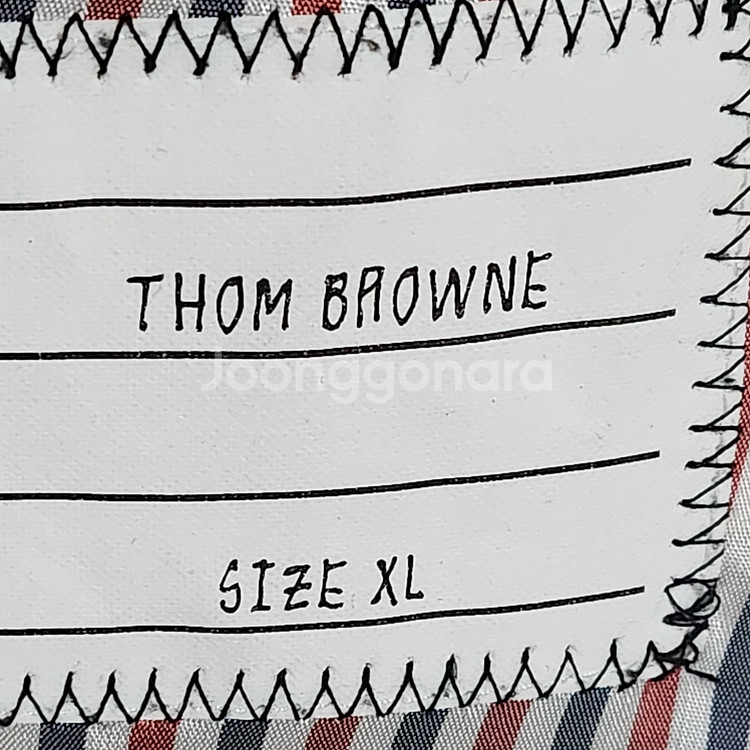 THOM BROWNE
Joonggonara
SIZE XL